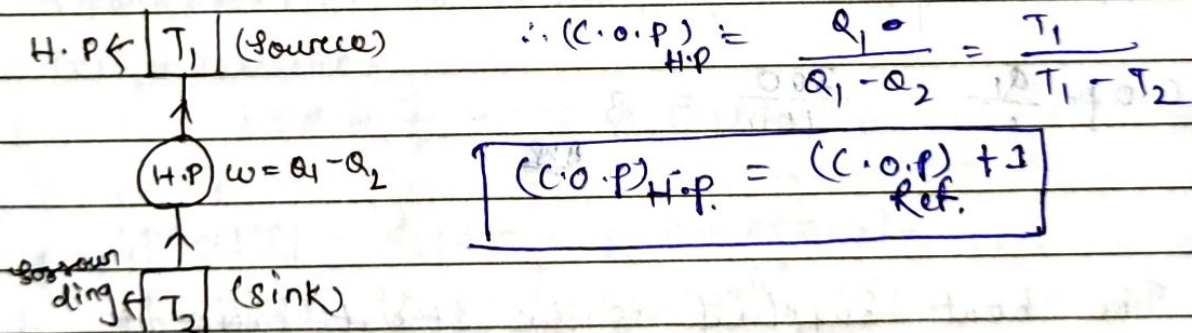 H.P ← T₁ (Source) ∴ (C.O.P)H.P = Q₁ / Q₁ - Q₂ = T₁ / T₁ - T₂
H.P W = Q₁ - Q₂ (C.O.P)H.P. = (C.O.P)Ref. + 1
surroun
ding ← T₂ (sink)